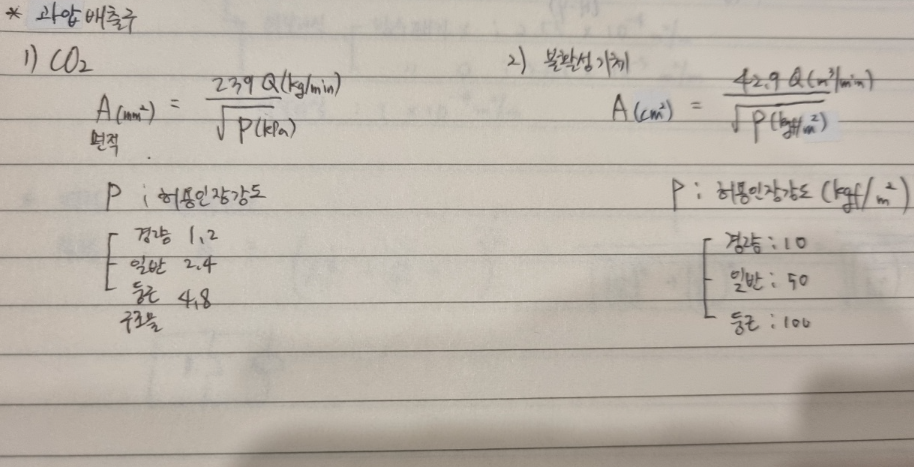 * 과압배출구
1) CO₂
A(mm²) = 239 Q(kg/min) / √P(kPa)
면적
P ; 허용인장강도
경량 1.2
일반 2.4
둥근 4.8
구조물
2) 불활성기체
A(cm²) = 42.9 Q(m³/min) / √P(kgf/m²)
P : 허용인장강도 (kgf/m²)
경량 : 10
일반 : 50
둥근 : 100